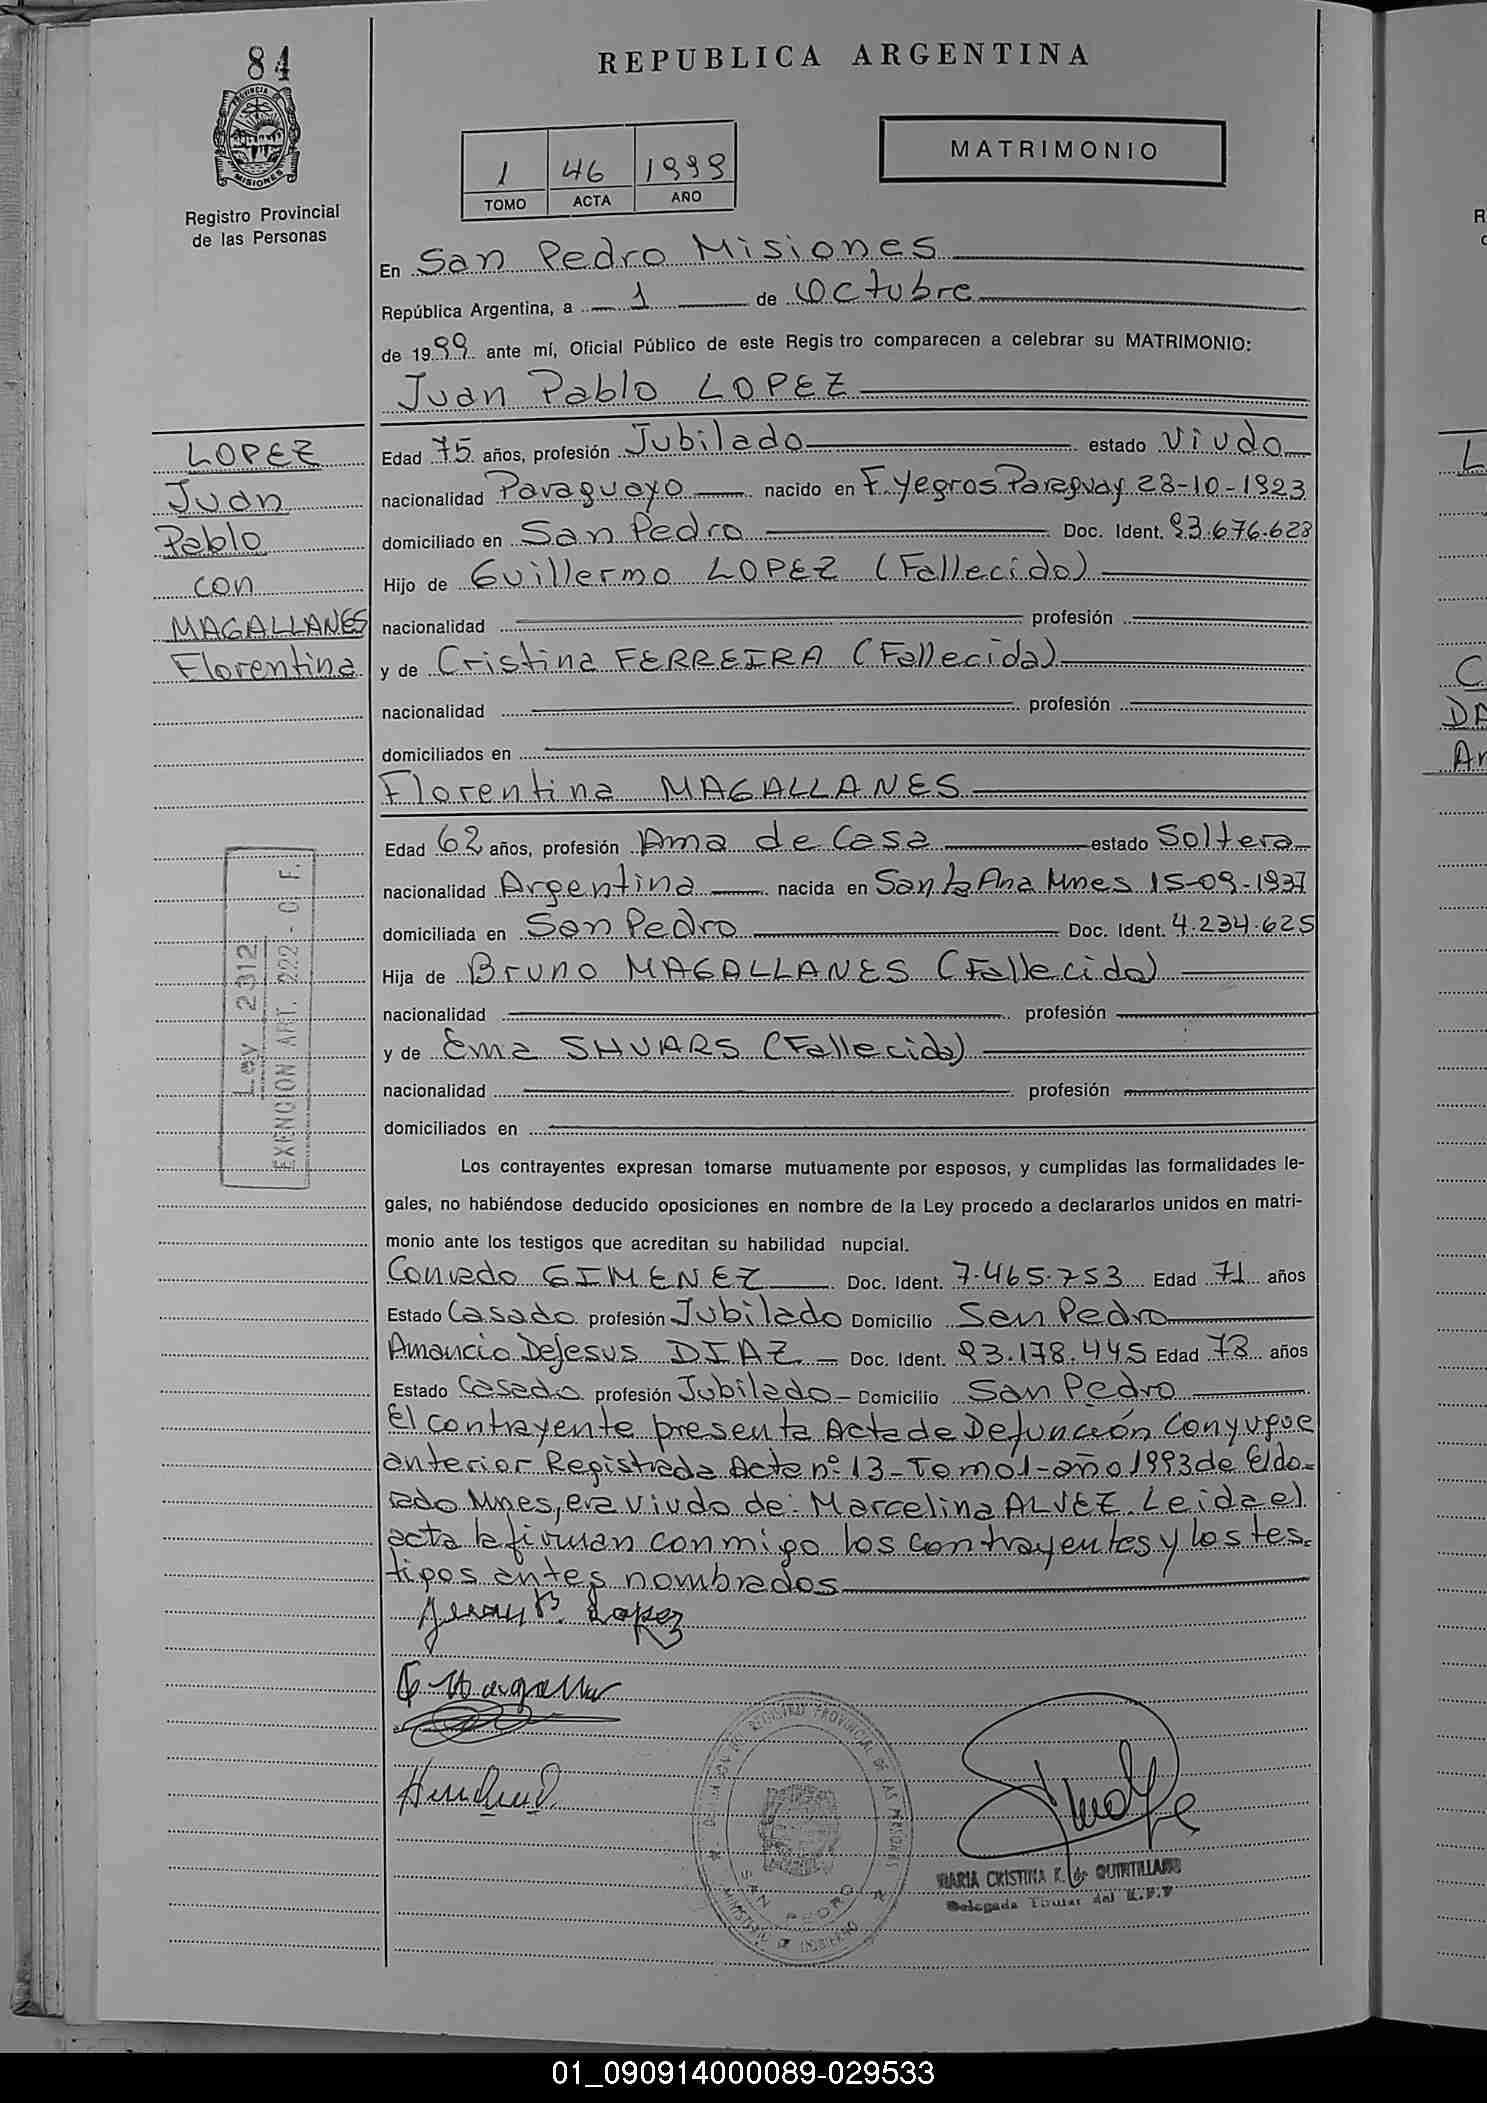 84
REPUBLICA ARGENTINA
PROVINCIA
MISIONES
Registro Provincial
de las Personas
1 46 1999
TOMO ACTA AÑO
MATRIMONIO
En San Pedro Misiones
República Argentina, a 1 de Octubre
de 1999 ante mí, Oficial Público de este Regis tro comparecen a celebrar su MATRIMONIO:
Juan Pablo LOPEZ
LOPEZ
Juan
Pablo
con
MAGALLANES
Florentina
Edad 75 años, profesión Jubilado estado Viudo
nacionalidad Paraguayo nacido en F. Yegros Paraguay 23-10-1923
domiciliado en San Pedro Doc. Ident. 93.676.623
Hijo de Guillermo LOPEZ (Fallecido)
nacionalidad profesión
y de Cristina FERREIRA (Fallecida)
nacionalidad profesión
domiciliados en
Florentina MAGALLANES
Edad 62 años, profesión Ama de Casa estado Soltera
nacionalidad Argentina nacida en Santa Ana Mnes 15-09-1937
domiciliada en San Pedro Doc. Ident. 4.234.625
Hija de Bruno MAGALLANES (Fallecido)
nacionalidad profesión
y de Ema SHVARS (Fallecida)
nacionalidad profesión
domiciliados en
Ley 2312
EXENCION ART. 222 - C F.
Los contrayentes expresan tomarse mutuamente por esposos, y cumplidas las formalidades le-
gales, no habiéndose deducido oposiciones en nombre de la Ley procedo a declararlos unidos en matri-
monio ante los testigos que acreditan su habilidad nupcial.
Conrado GIMENEZ Doc. Ident. 7.465.753 Edad 71 años
Estado Casado profesión Jubilado Domicilio San Pedro
Amancio DeJesus DIAZ Doc. Ident. 93.178.445 Edad 73 años
Estado Casado profesión Jubilado Domicilio San Pedro
El contrayente presenta Acta de Defunción Conyugue
anterior Registrada Acta nº 13-Tomo 1-año 1993 de Eldo-
rado Mnes, era viudo de: Marcelina ALVEZ. Leida el
acta la firman conmigo los contrayentes y los tes-
tigos antes nombrados
Juan P. Lopez
REGISTRO PROVINCIAL DE LAS PERSONAS
SAN PEDRO
MINISTERIO DE GOBIERNO
MARIA CRISTINA K. de QUINTILLANO
Delegada Titular del R.P.P
01_090914000089-029533